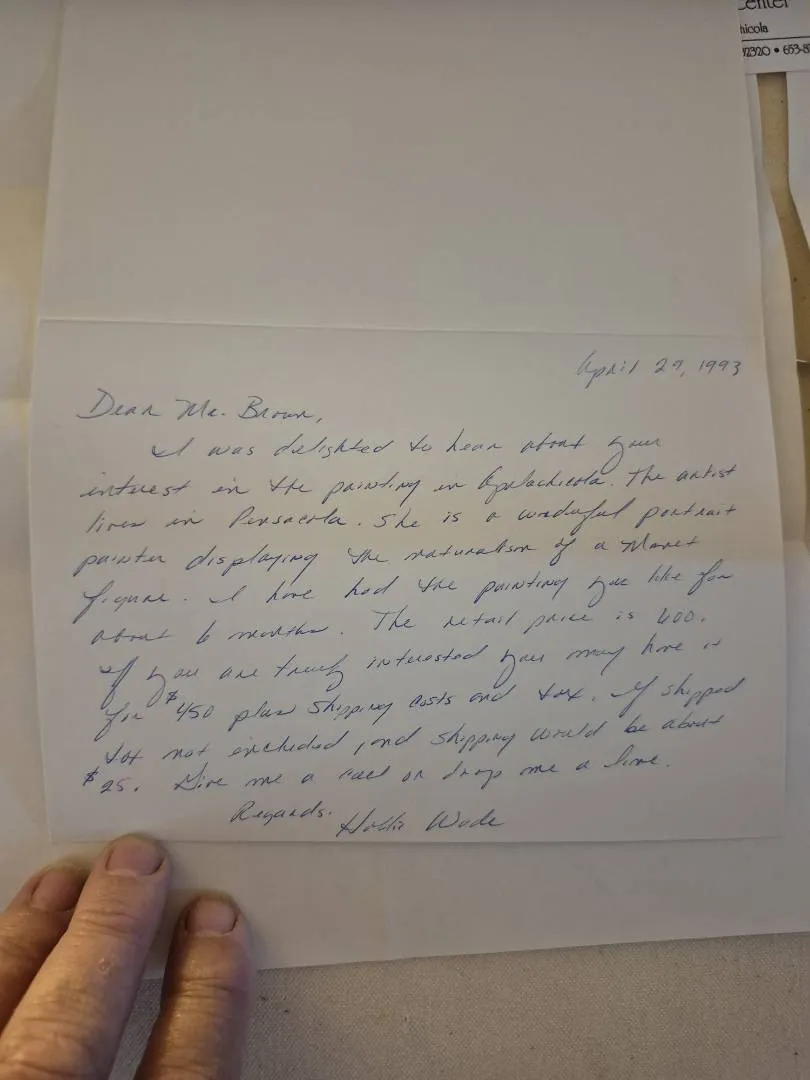 Center
hicola
32320 • 653-8
April 29, 1993
Dear Mr. Brown,
I was delighted to hear about your
interest in the painting in Apalachicola. The artist
lives in Pensacola. She is a wonderful portrait
painter displaying the naturalism of a Manet
figure. I have had the painting you like for
about 6 months. The retail price is 600.
If you are truly interested you may have it
for $450 plus shipping costs and tax. If shipped
tax not included, and shipping would be about
$25. Give me a call or drop me a line.
Regards.
Hollis Wade